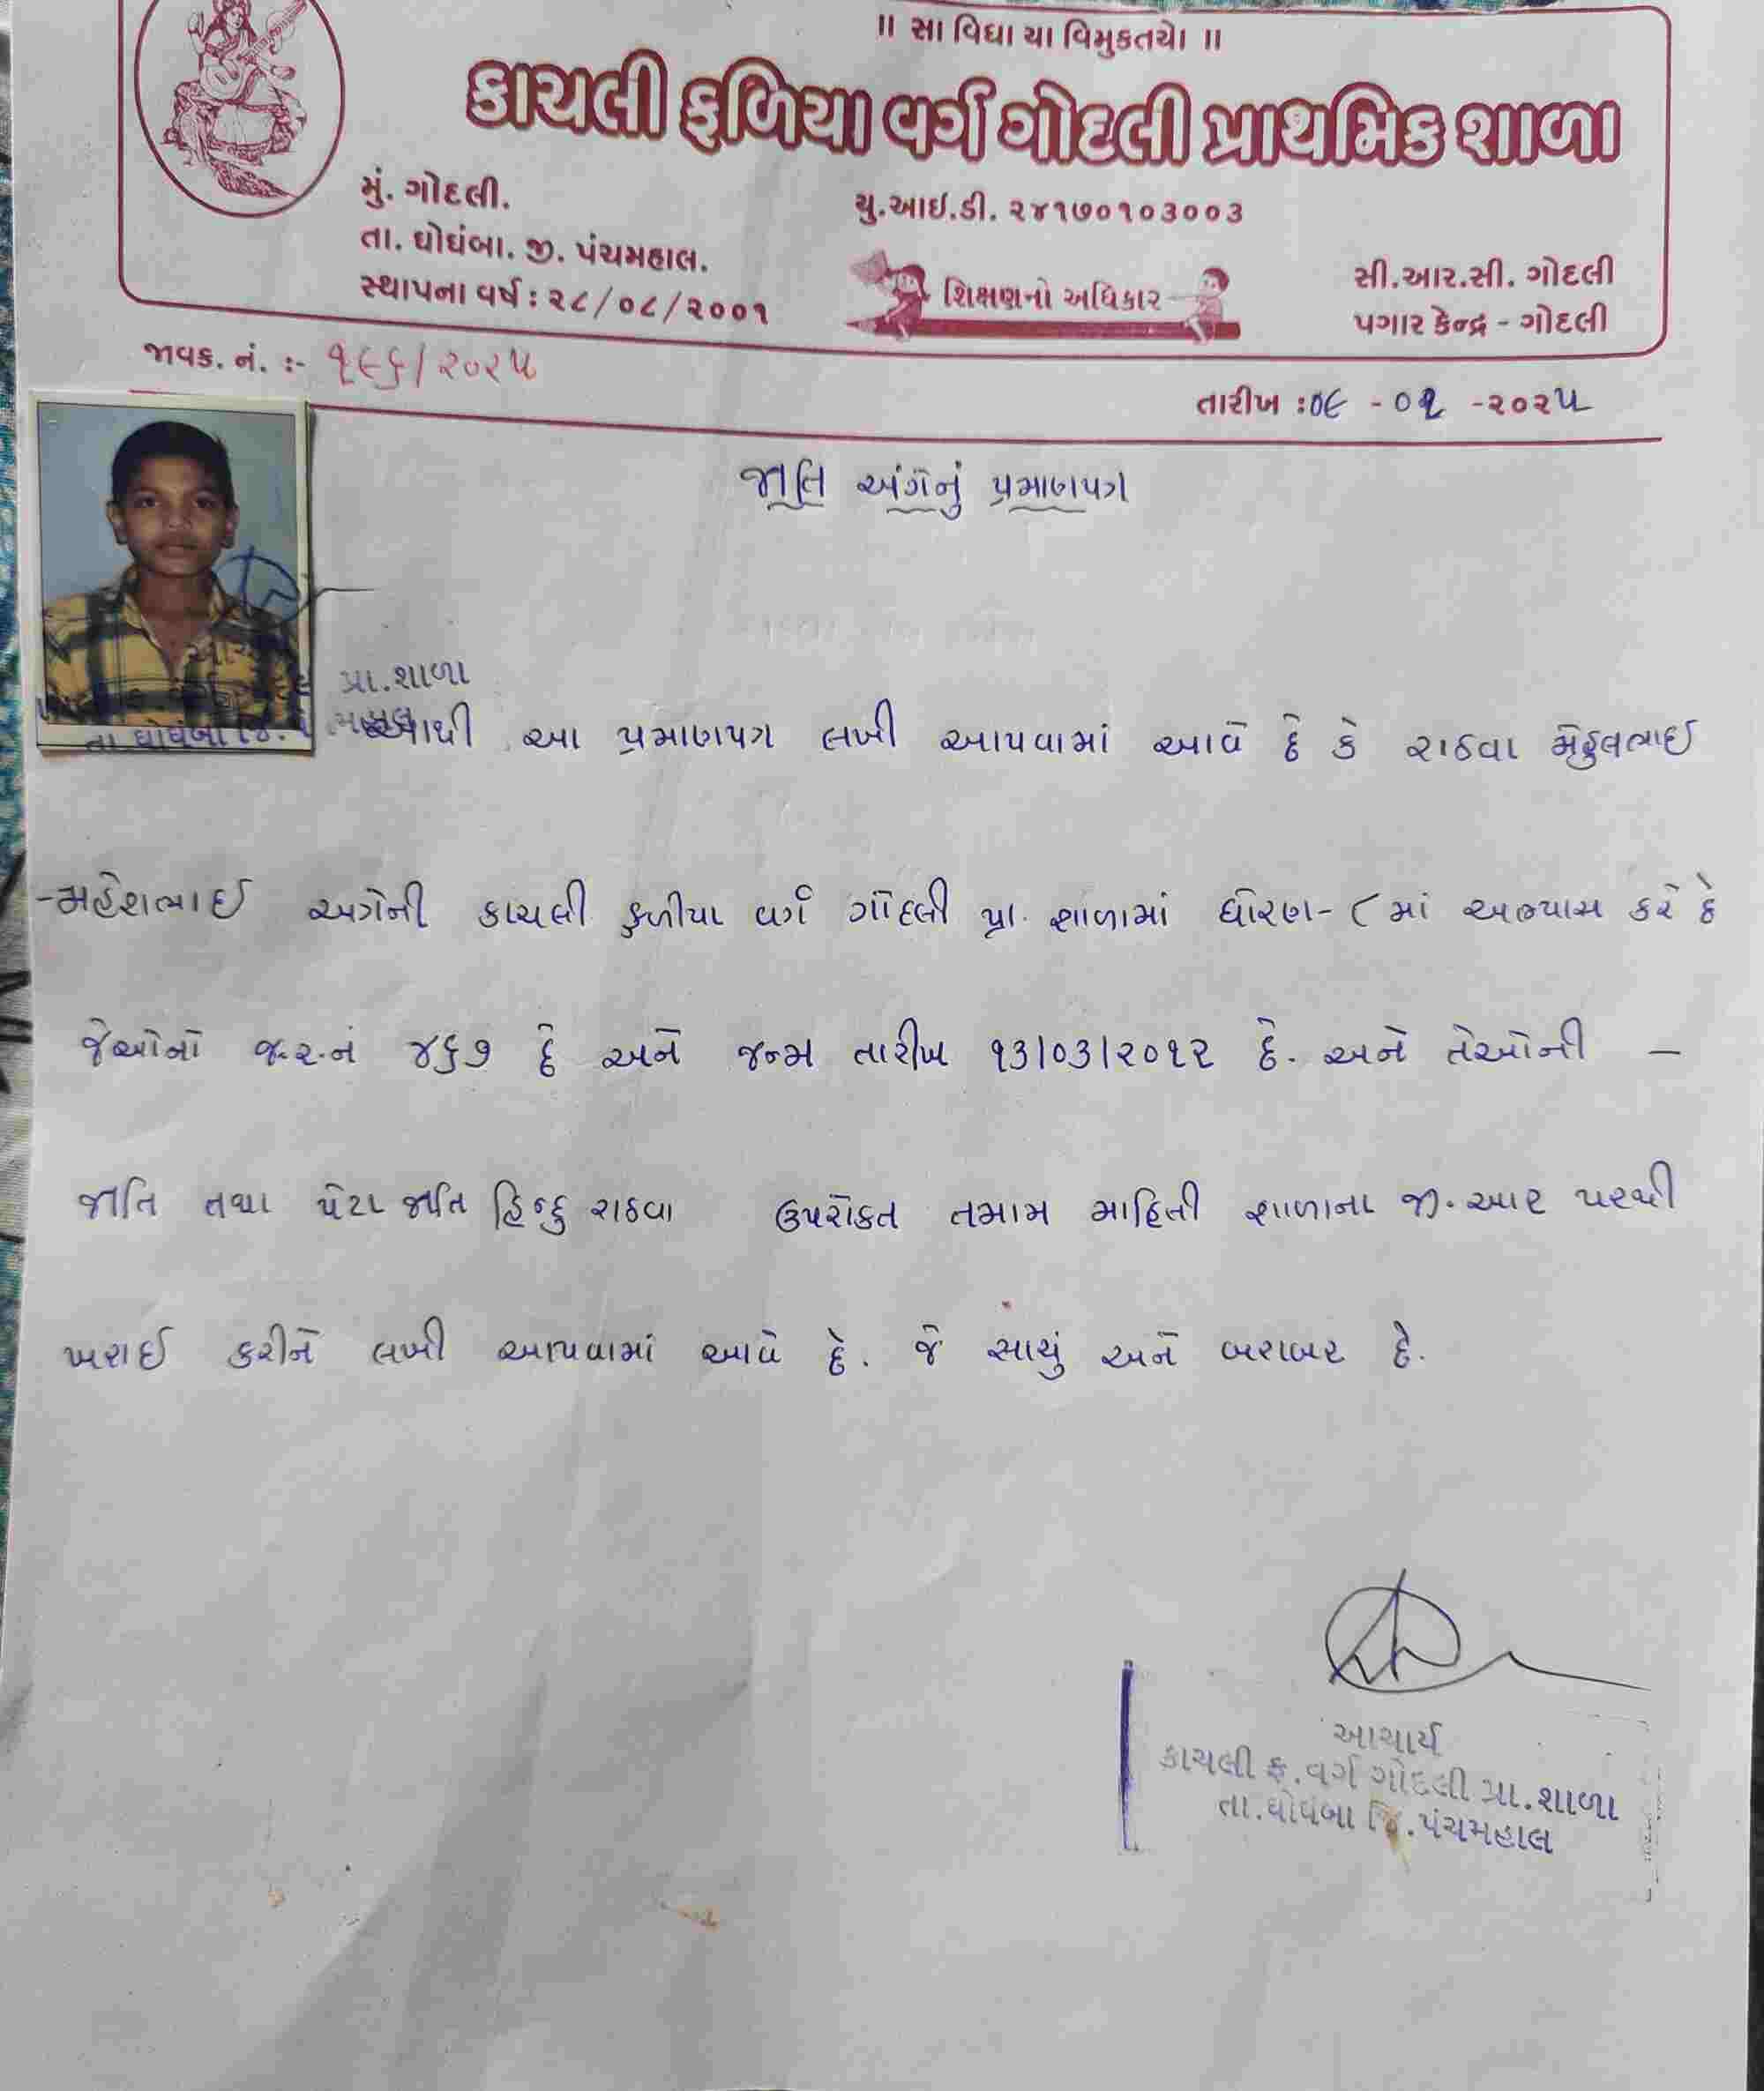 ॥ સા વિદ્યા યા વિમુકતયે ॥
કાચલી ફળિયા વર્ગ ગોદલી પ્રાથમિક શાળા
મું. ગોદલી.
યુ.આઈ.ડી. ૨૪૧૭૦૧૦૩૦૦૩
તા. ઘોઘંબા. જી. પંચમહાલ.
સ્થાપના વર્ષ : ૨૮/૦૮/૨૦૦૧
શિક્ષણનો અધિકાર
સી.આર.સી. ગોદલી
પગાર કેન્દ્ર - ગોદલી
જાવક. નં. :- ૧૯૬/૨૦૨૫
તારીખ : ૦૯ - ૦૧ -૨૦૨૫
જાતિ અંગેનું પ્રમાણપત્ર
પ્રા.શાળા
તા ઘોઘંબા જિ.
આથી આ પ્રમાણપત્ર લખી આપવામાં આવે છે કે રાઠવા મેહુલભાઈ
-મહેશભાઈ અત્રેની કાચલી ફળીયા વર્ગ ગોદલી પ્રા. શાળામાં ધોરણ-૮ માં અભ્યાસ કરે છે
જેઓનો જ.ર.નં ૪૬૭ છે અને જન્મ તારીખ ૧૩/૦૩/૨૦૧૨ છે. અને તેઓની —
જાતિ તથા પેટા જાતિ હિન્દુ રાઠવા ઉપરોકત તમામ માહિતી શાળાના જી.આર પરથી
ખરાઈ કરીને લખી આપવામાં આવે છે. જે સાચું અને બરાબર છે.
આચાર્ય
કાચલી ફ.વર્ગ ગોદલી પ્રા.શાળા
તા.ઘોઘંબા જિ.પંચમહાલ